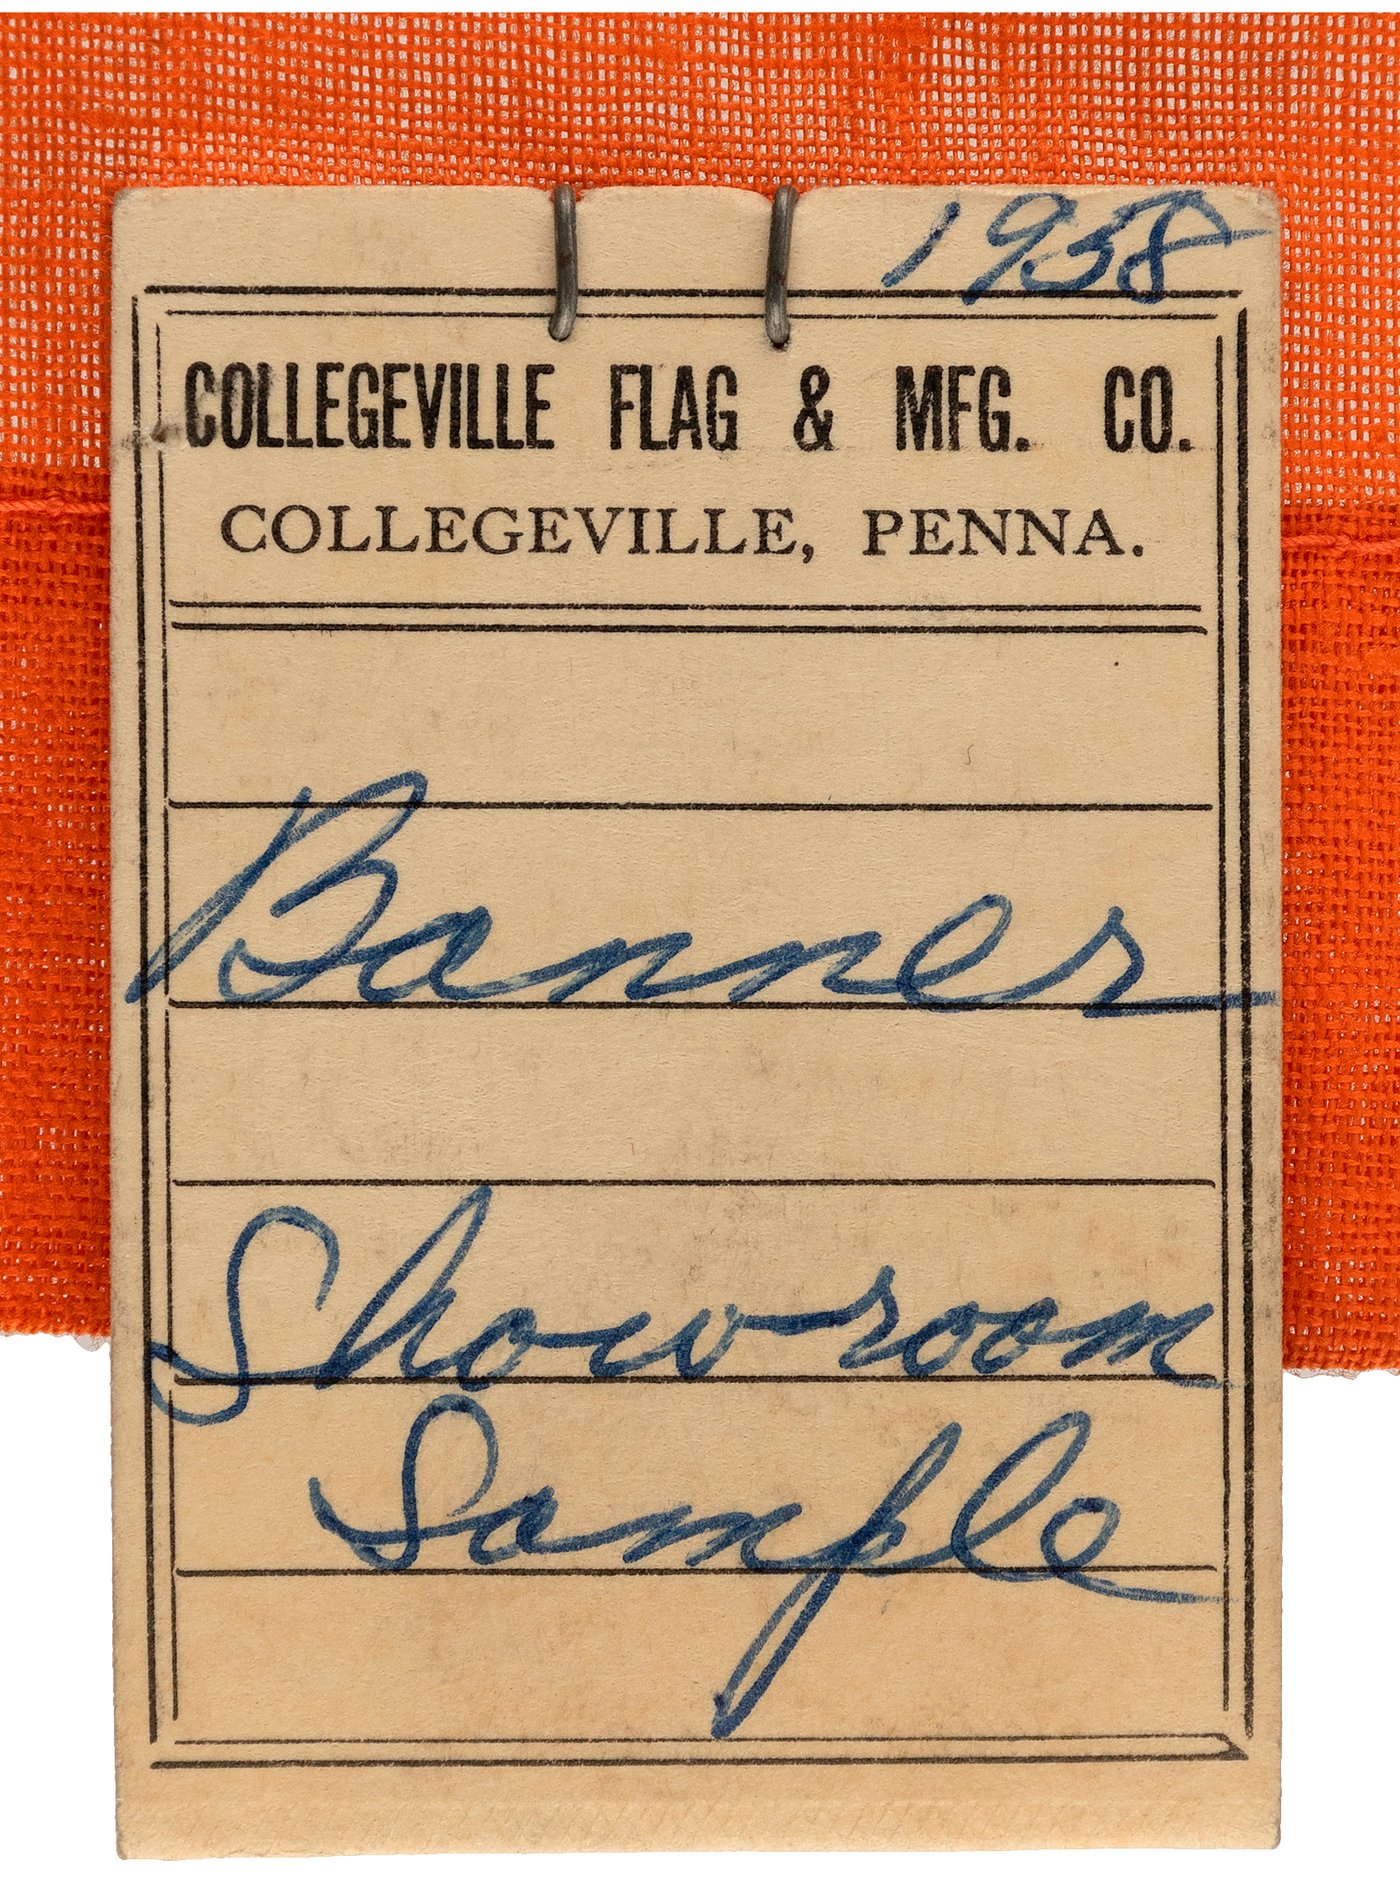 1958
COLLEGEVILLE FLAG & MFG. CO.
COLLEGEVILLE, PENNA.
Banner
Showroom
Sample